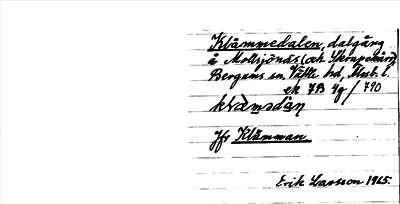 Klåmmedalen, dalgång
å Mollsjönäs (och Skrapekärr)
Bergums sn, Vättle hd, Älvsb. l.
ek 7B 4g / 790
Jfr Klåmman
Erik Larsson 1965.